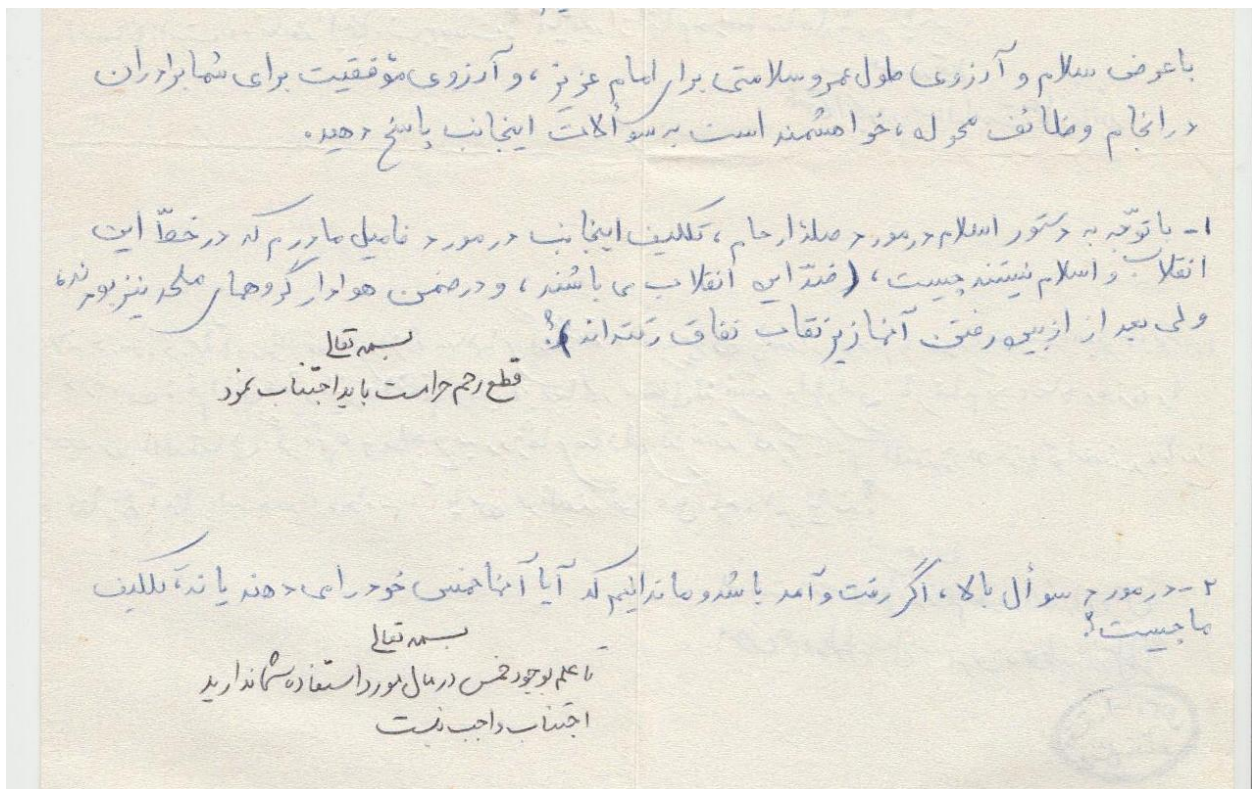 با عرض سلام و آرزوی طول عمر و سلامتی برای امام عزیز، و آرزوی موفقیت برای شما برادران
در انجام وظائف محوله، خواهشمند است به سوألات اینجانب پاسخ دهید.
۱- با توجّه به دستور اسلام در مورد صلهٔ ارحام، تکلیف اینجانب در مورد فامیل مادرم که در خطّ این
انقلاب و اسلام نیستند چیست، (ضدّ این انقلاب می باشند، و در ضمن هوادار گروههای ملحد نیز بودند،
ولی بعد از از بین رفتن آنها زیر نقاب نفاق رفته اند)؟
بسمه تعالی
قطع رحم حرام است باید اجتناب نمود
۲- در مورد سوأل بالا، اگر رفت و آمد باشد و ما ندانیم که آیا آنها خمس خود را می دهند یا نه، تکلیف
ما چیست؟
بسمه تعالی
تا علم بوجود خمس در مال مورد استفاده شما ندارید
اجتناب واجب نیست